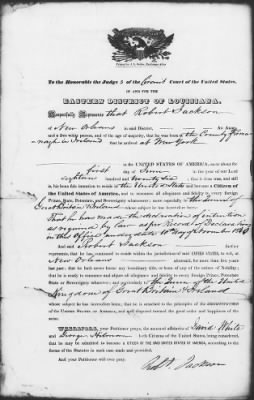 To the Honorable the Judges of the Circuit Court of the United States,
IN AND FOR THE
EASTERN DISTRICT OF LOUISIANA.
Respectfully Represents that Robert Jackson
of New Orleans in said District,
and a free white person, and of the age of majority, that he was born at the County
in Ireland that he arrived at New York
in the UNITED STATES OF AMERICA, on or about the
first day of June
eighteen hundred twenty six that it was then, and still
is his bona fide intention to reside in the United States and to become a Citizen of the
United States of America, and to renounce all allegiance and fidelity to every foreign
Prince, State, Potentate, and Sovereignty whatever, more especially to the
Great Britain & Ireland whose subject he was heretofore
That he has made the declaration of intention
as required by law as per Record of Declaration
in this Office under date of
And said Robert Jackson
that he has continued to reside within the jurisdiction of said UNITED STATES, to wit, at
New Orleans
years past, that he hath never borne any hereditary title, or been of any of the orders of Nobility;
that he is ready to renounce and abjure all allegiance and fidelity to every foreign Prince, Potentate
State or Sovereignty whatever, and particularly to the Queen of the United
Kingdom of Great Britain & Ireland
whose subject he has heretofore been, that he is attached to the principles of the CONSTITUTION OF
THE UNITED STATES OF AMERICA, and well disposed toward the good order and happiness of the
same.
WHEREFORE, Your Petitioner prays, the annexed affidavits of David White
and George
both Citizens of the United States being considered, that he
may be admitted to become a CITIZEN OF THE SAID UNITED STATES OF AMERICA, according to the
forms of the Statutes in such case made and provided.
And your Petitioner will ever pray.
Robt Jackson